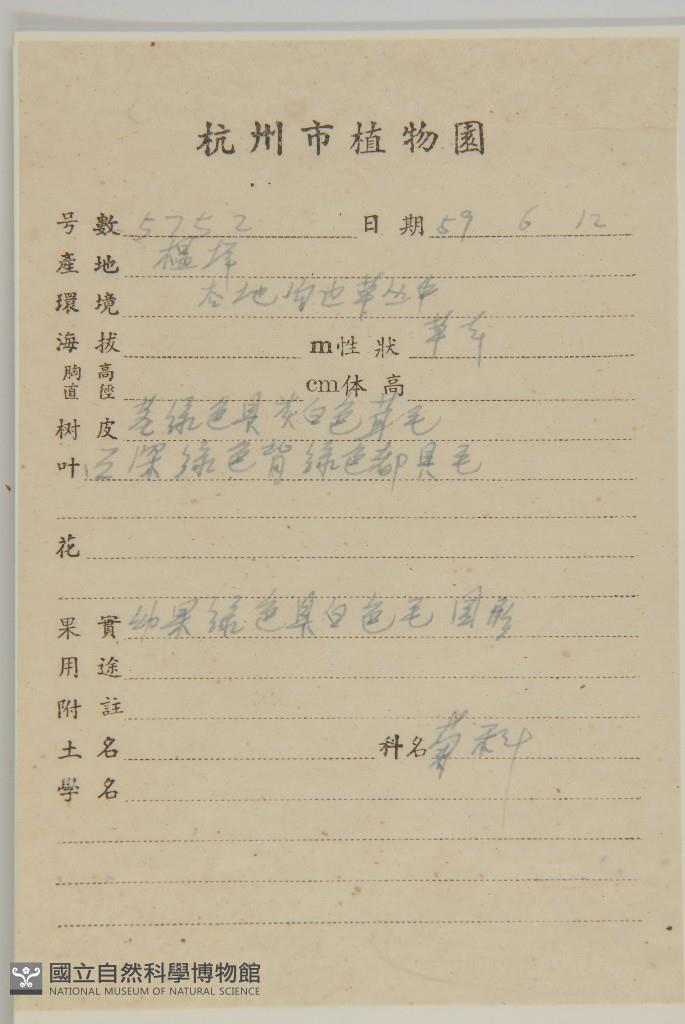 杭州市植物園
号數 5752 日期 59 6 12
產地 榅坪
環境 地沟边草丛中
海拔 m性狀 草本
胸高直徑 cm体高
树皮 茎绿色具灰白色茸毛
叶 深绿色背绿色都具毛
花
果實 幼果绿色具白色毛 圆形
用途
附註
土名 科名 菊科
學名
國立自然科學博物館
NATIONAL MUSEUM OF NATURAL SCIENCE